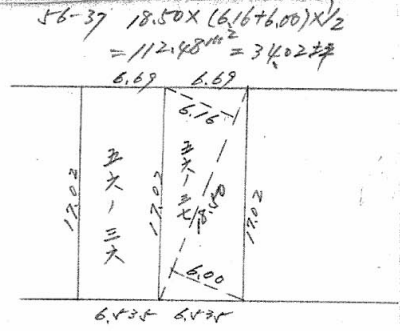 56-37 18.50×(6.16+6.00)×1/2
=112.48m²=34.02坪
6.69 6.69
6.16
17.02
五六-三六
17.02
五六-三七
18.50
17.02
6.00
6.535 6.535